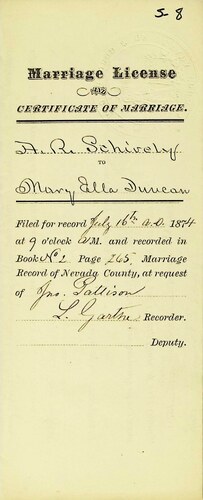 S-8
Marriage License
AND
CERTIFICATE OF MARRIAGE.
A. R. Schively
TO
Mary Ella Duncan
Filed for record July 16th A.D. 1874
at 9 o'clock A.M. and recorded in
Book No 2 Page 265 Marriage
Record of Nevada County, at request
of Jno. Pattison
L. Garthe Recorder.
Deputy.